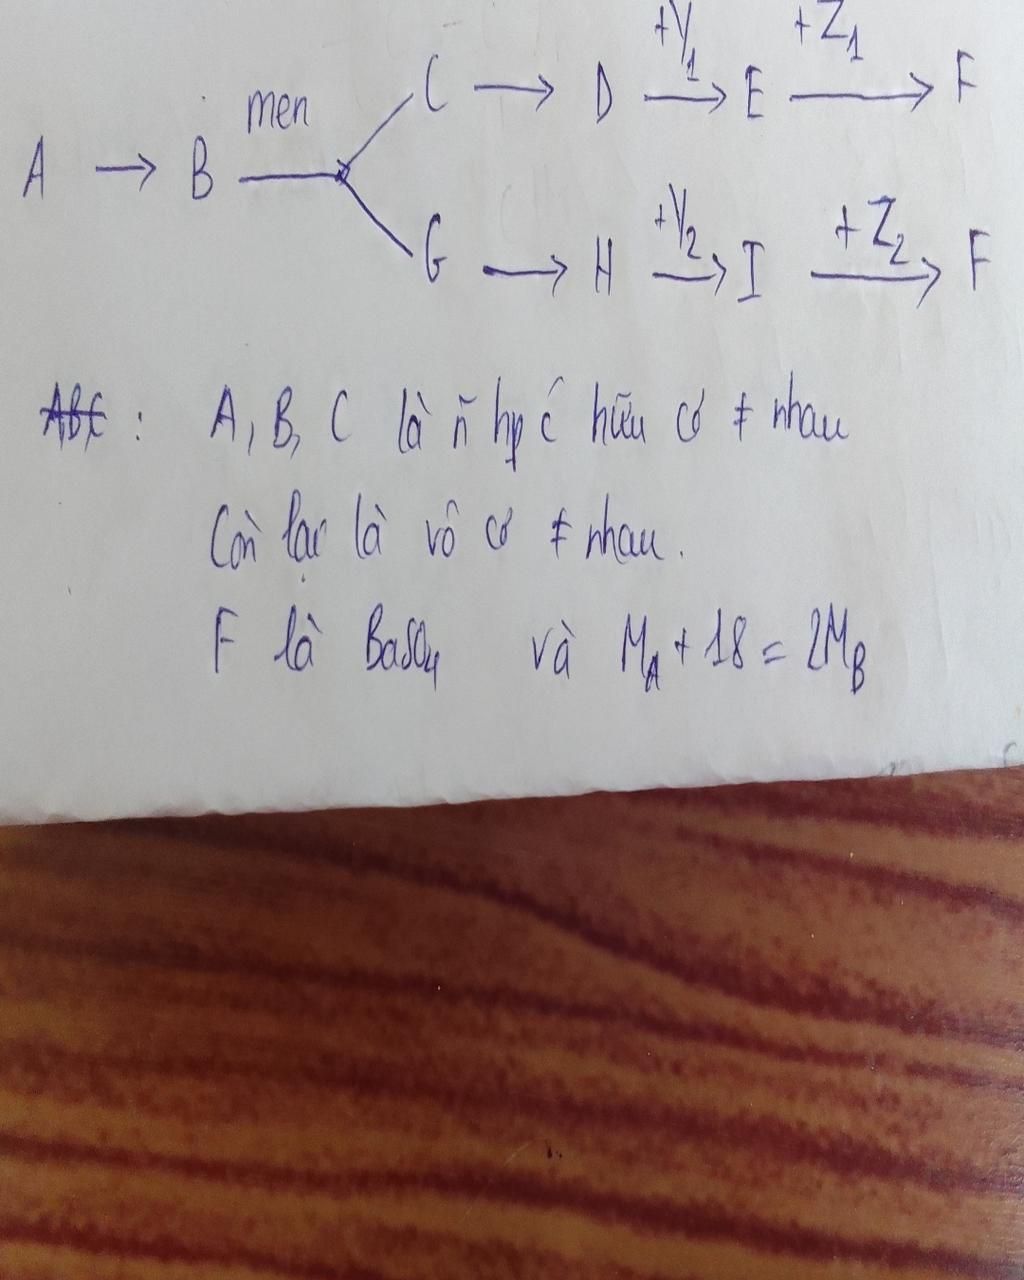 C → D +Y₁ → E +Z₁ → F
A → B men →
G → H +Y₂ → I +Z₂ → F
ABC : A, B, C là ñ hp ć hữu cơ ≠ nhau
Còn lại là vô cơ ≠ nhau.
F là BaSO₄ và M_A + 18 = 2M_B